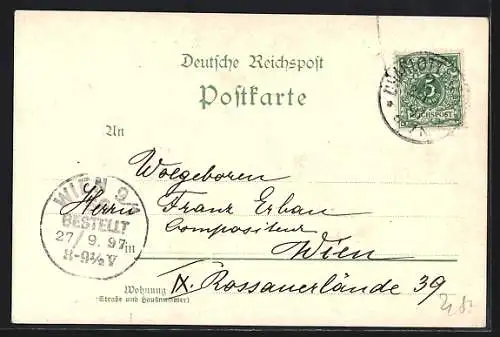 Deutsche Reichspost
Postkarte
5
REICHSPOST
An
Wolgeboren
Herrn Franz Erban
Compositeur
Wien
WIEN 9/
BESTELLT
27/9.97
8-9½ V
Wohnung IX. Rossauerlände 39
(Straße und Hausnummer)